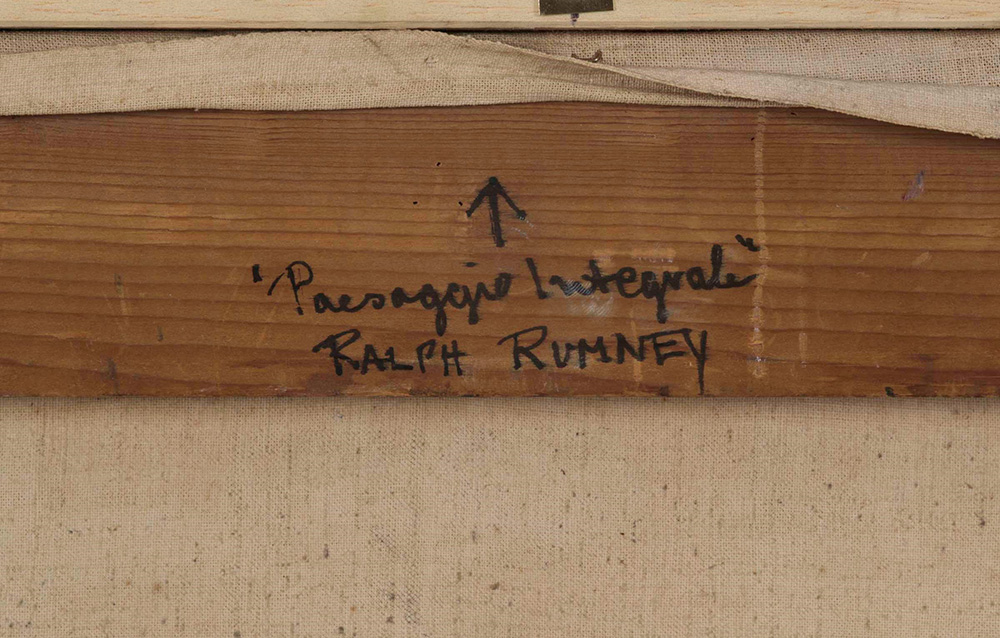 ↑
"Paesaggio Integrale"
RALPH RUMNEY